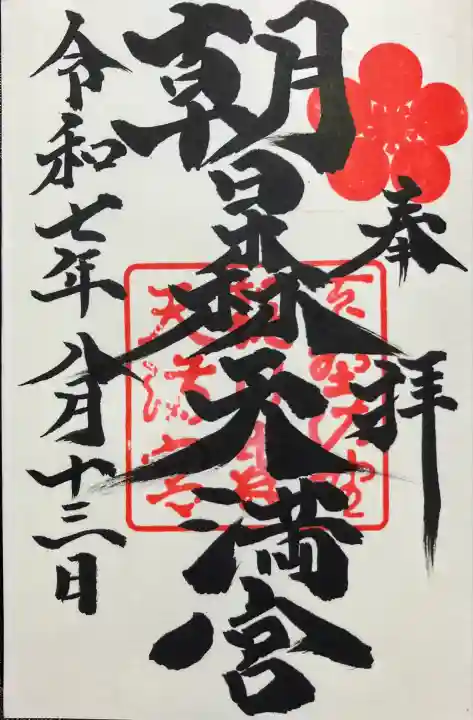 奉拝
朝日森天満宮
天満宮
令和七年八月十三日